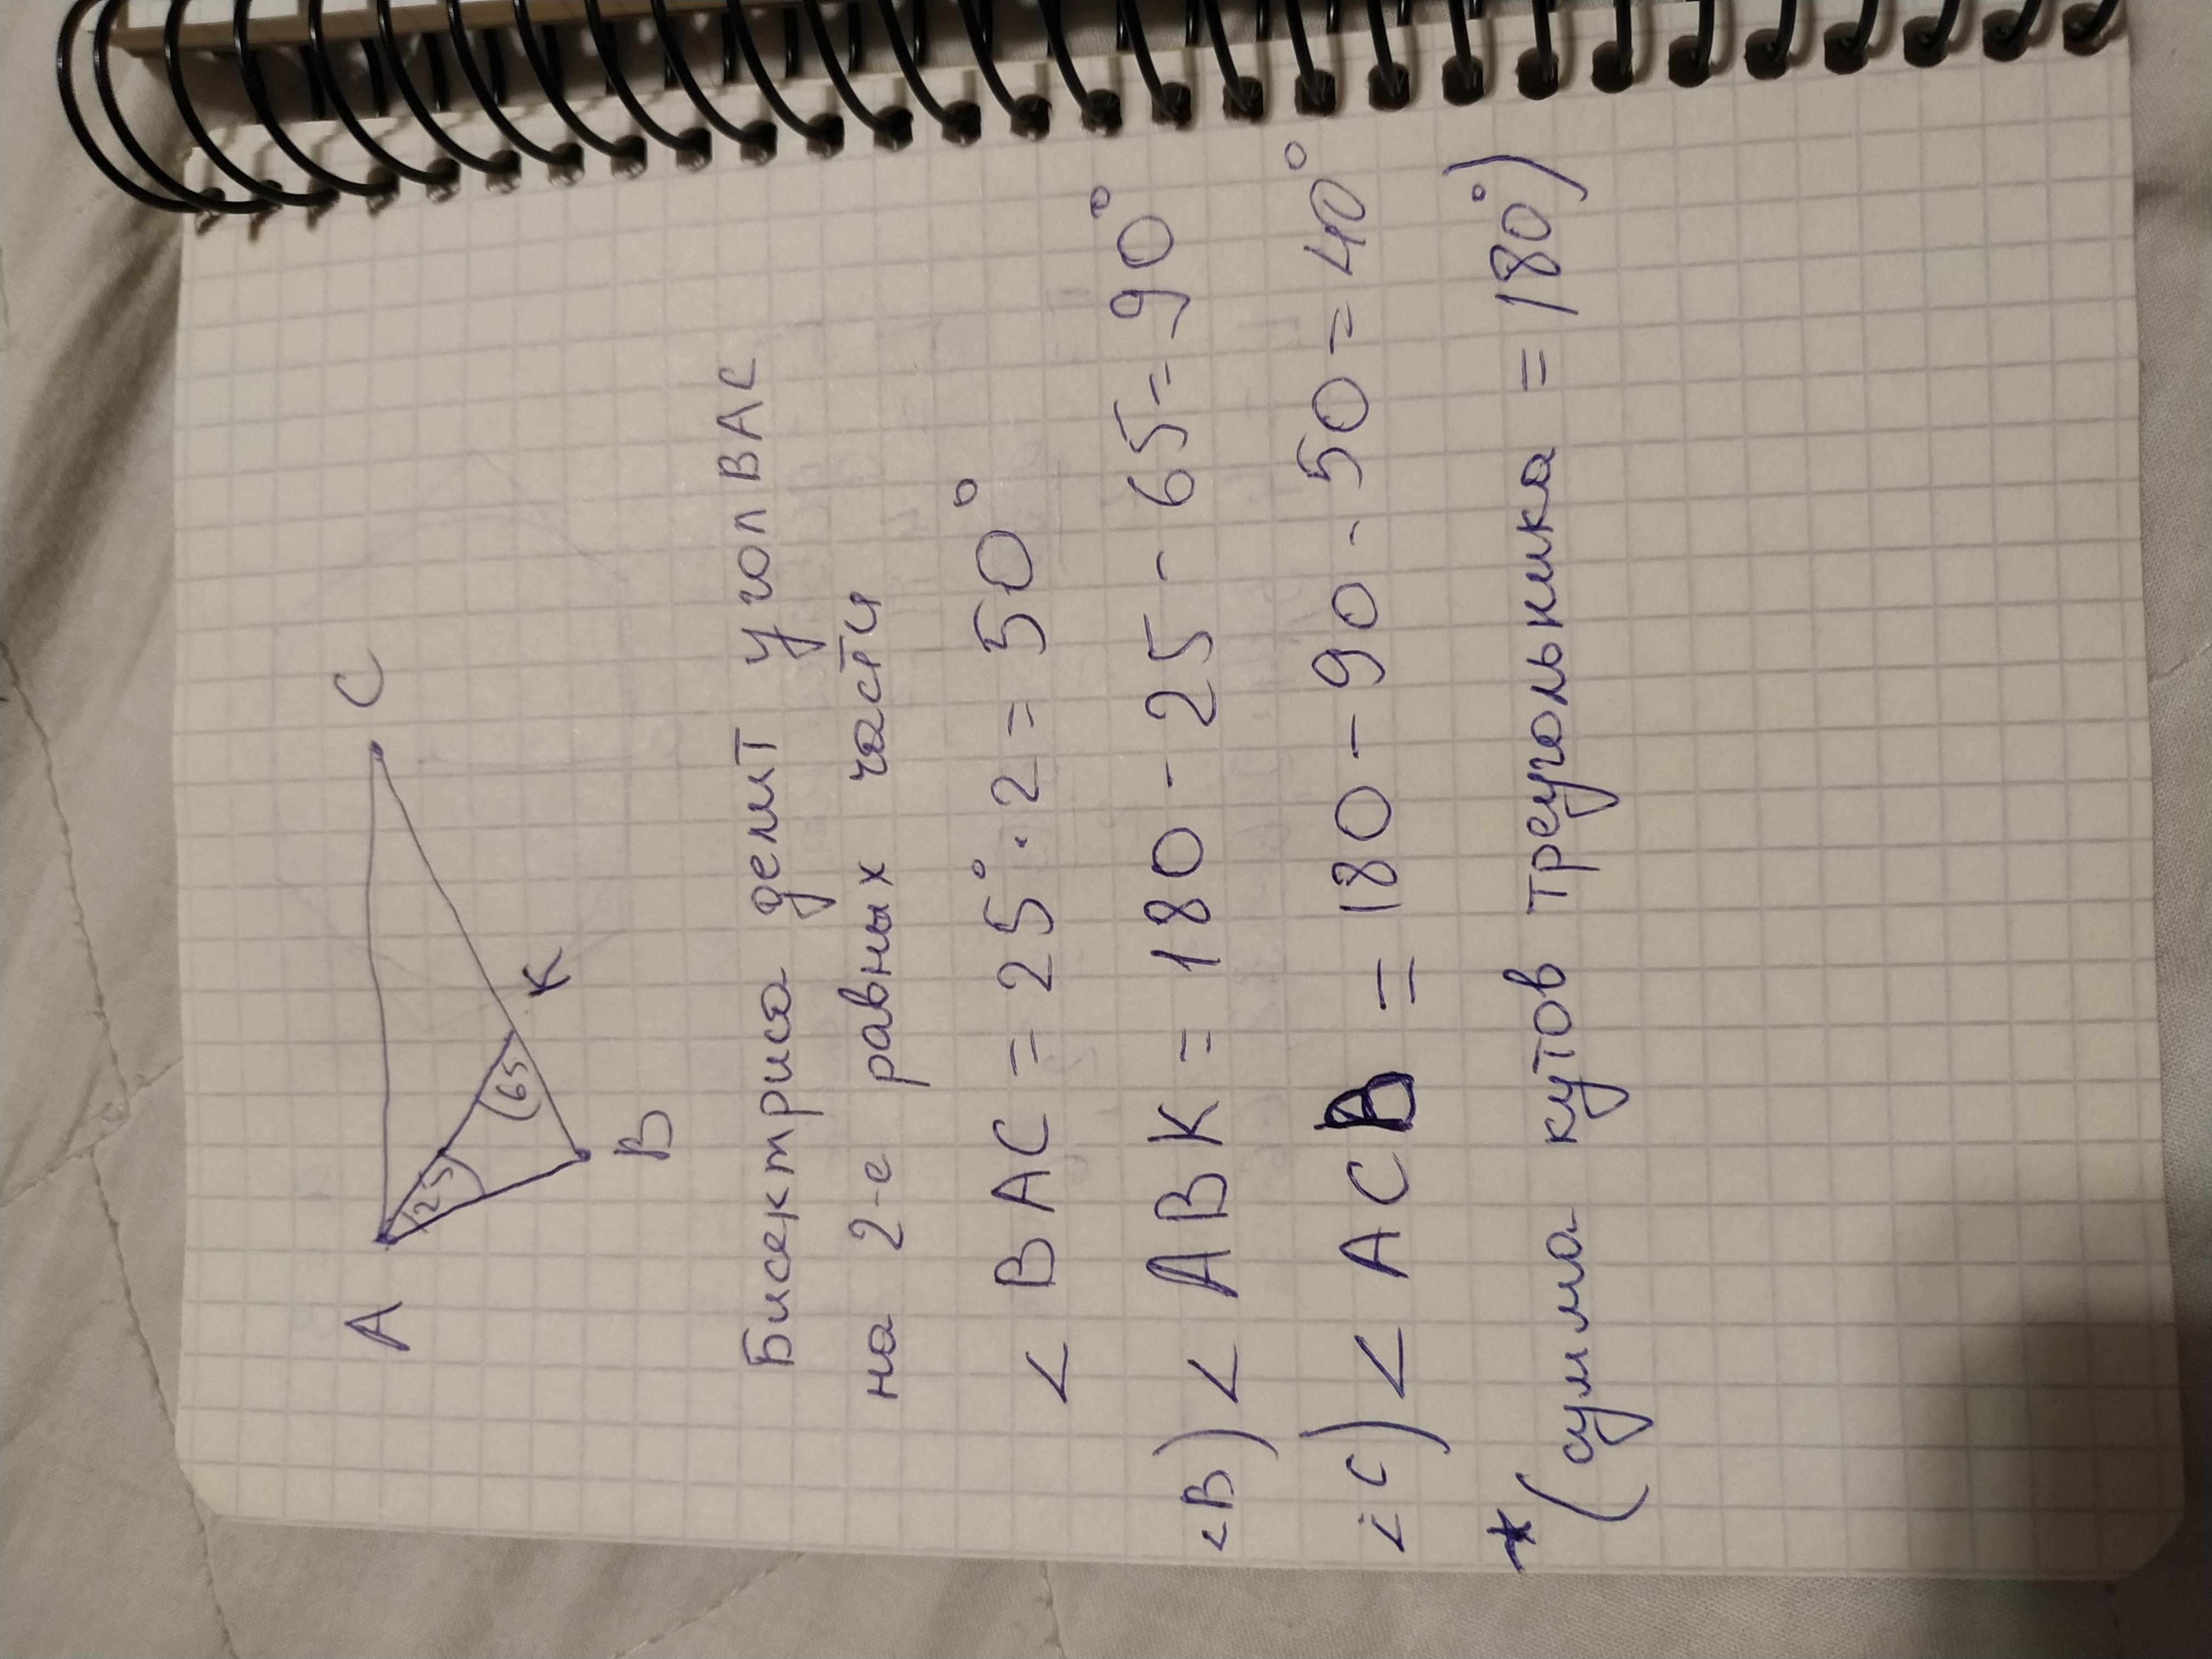 A
C
25
65
K
B
Бисектриса делит угол ВАС
на 2-е равных части
< BAC = 25° · 2 = 50°
<B) < ABK = 180 - 25 - 65 = 90°
<C) < ACB = 180 - 90 - 50 = 40°
* (сумма кутов треугольника = 180°)